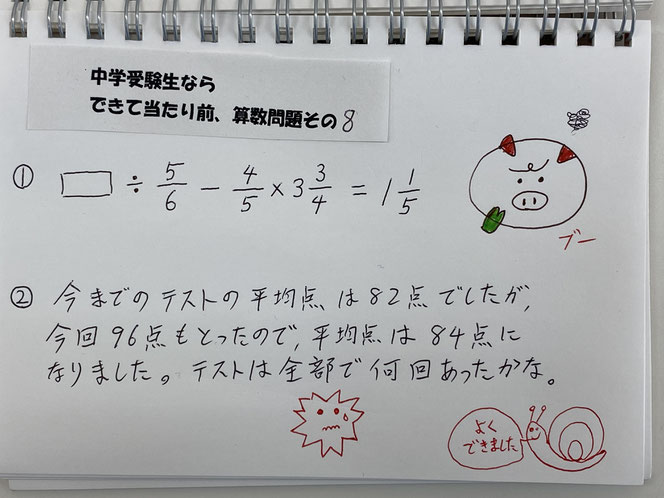 中学受験生なら
できて当たり前、算数問題その8
① □ ÷ 5/6 − 4/5 × 3 3/4 = 1 1/5
ブー
② 今までのテストの平均点は82点でしたが,
今回96点もとったので,平均点は84点に
なりました。テストは全部で何回あったかな。
よく
できました